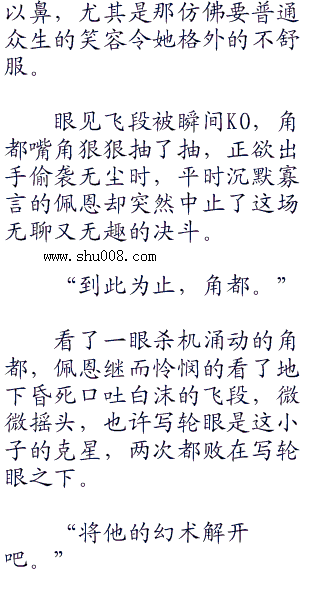 以鼻，尤其是那仿佛要普通
众生的笑容令她格外的不舒
服。
眼见飞段被瞬间KO，角
都嘴角狠狠抽了抽，正欲出
手偷袭无尘时，平时沉默寡
言的佩恩却突然中止了这场
无聊又无趣的决斗。
www.shu008.com
“到此为止，角都。”
看了一眼杀机涌动的角
都，佩恩继而怜悯的看了地
下昏死口吐白沫的飞段，微
微摇头，也许写轮眼是这小
子的克星，两次都败在写轮
眼之下。
“将他的幻术解开
吧。”